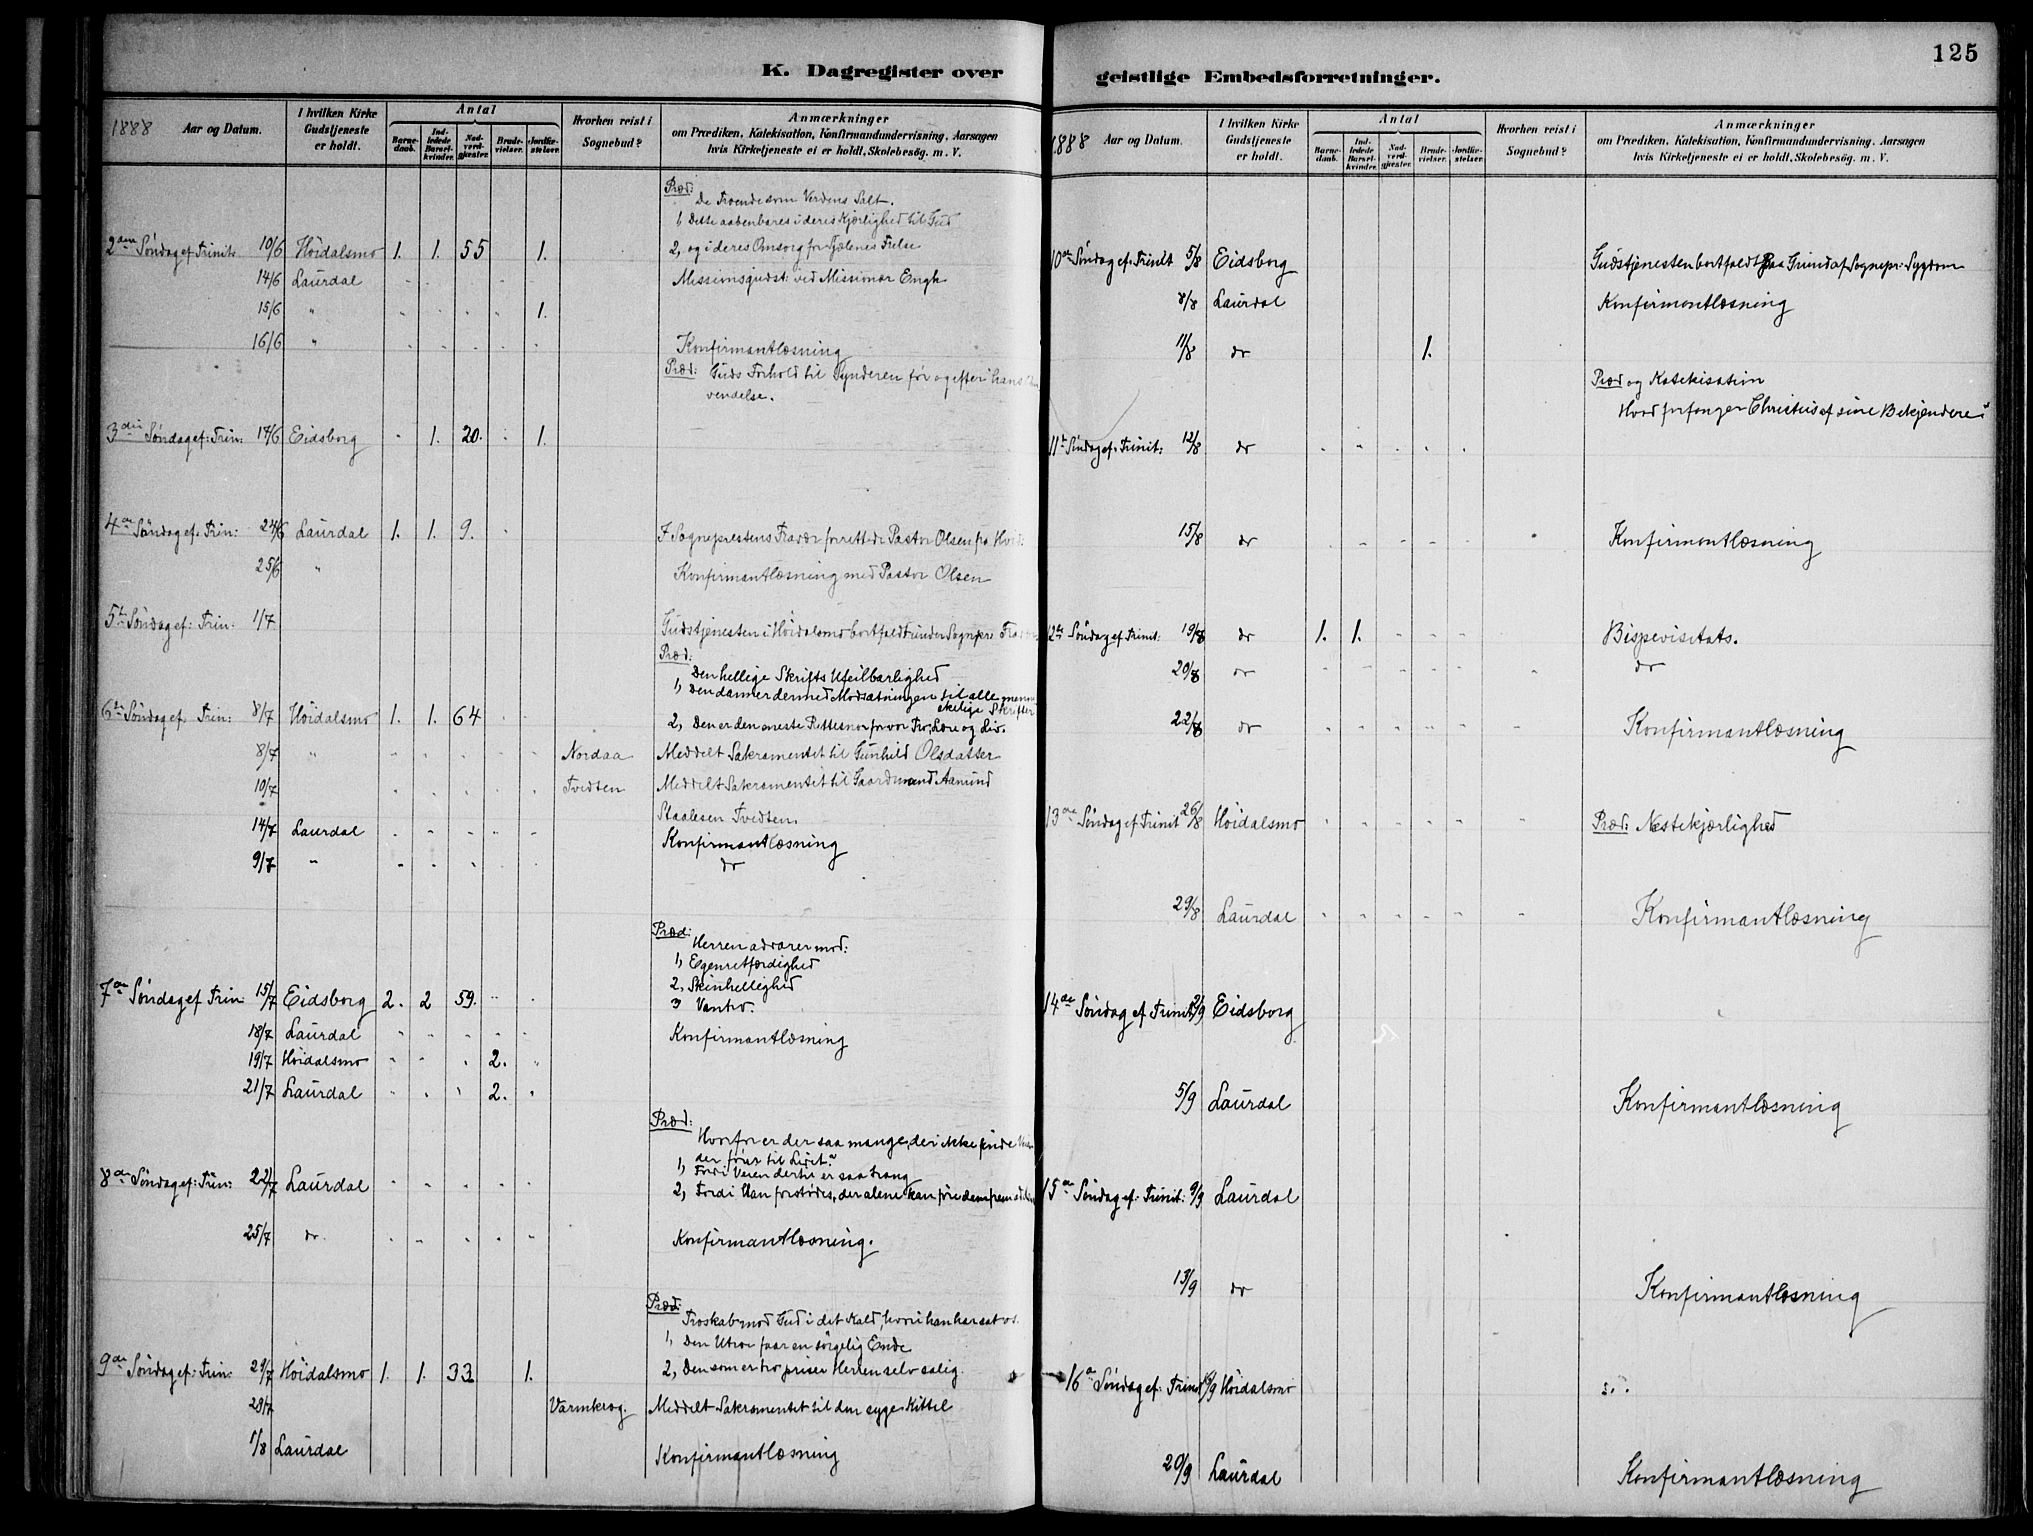 K. Dagregister over
1888 Aar og Datum.
I hvilken Kirke Gudstjeneste er holdt.
Antal
Barnedaab.
Indledede Barselkvinder.
Nadverdgjester.
Brudevielser.
Jordfæstelser.
Hvorhen reist i Sognebud?
Anmærkninger
om Prædiken, Katekisation, Konfirmandundervisning, Aarsagen
hvis Kirketjeneste ei er holdt, Skolebesøg. m. V.
Præd:
De Troende som Verdens Salt.
1, Dette aabenbares i deres Kjærlighed til Gud
2den Søndag ef Trinit: 10/6 Höidalsmo 1. 1. 55 1. 2, og i deres Omsorg for Sjælenes Frelse
14/6 Laurdal Missionsgudst: ved Missionær Engh
15/6 " 1.
16/6 " Konfirmantlæsning
Præd: Guds Forhold til Synderen før og efter hans
vendelse.
3die Søndag ef: Trin: 17/6 Eidsborg 1. 20. 1.
4de Søndag ef. Trin: 24/6 Laurdal 1. 1. 9. I Sogneprestens Fravær forrettede Pastor Olsen fra Hvid:
25/6 " Konfirmantlæsning med Pastor Olsen
5te Søndag ef: Trin: 1/7 Gudstjenesten i Höidalsmo bortfaldt under Sognepr:
Præd:
Den hellige Skrifts Ufeilbarlighed
1, Den danner dermed Modsætningen til alle menne
skelige Skrifter
6te Søndag ef. Trin: 8/7 Höidalsmo 1. 1. 64 2, Den er den eneste Rettesnor for vor Tro, Lære og Liv.
8/7 " Nordaa Meddelt Sakramentet til Gunhild Olsdatter
10/7 Tvedten Meddelt Sakramentet til Gaardmand Aamund
Staalesen Tvedten.
14/7 Laurdal Konfirmantlæsning
9/7 " do
Præd:
Herren advarer mod:
1, Egenretfærdighed
2, Skinhellighed
7de Søndag ef Trin 15/7 Eidsborg 2. 2 59. 3 Vantro.
18/7 Laurdal Konfirmantlæsning
19/7 Höidalsmo 2.
21/7 Laurdal 2.
Præd:
Hvorfor er der saa mange, der ikke finde
der fører til Livet?
1, Fordi Veien dertil er saa trang
8de Søndag ef: Trin: 22/7 Laurdal 2, Fordi Han forstødes, der alene kan føre dem frem
25/7 do. Konfirmantlæsning.
Præd:
Troskab mod Gud i det Kald, hvori han har sat os.
1, Den Utro faar en sørgelig Ende
9de Søndag ef: Trin: 29/7 Höidalsmo 1. 1. 33 1. 2, Den som er tro priser Herren selv salig.
29/7 Varmkrog. Meddelt Sakramentet til den syge Kittel
1/8 Laurdal Konfirmantlæsning
125
geistlige Embedsforretninger.
1888 Aar og Datum.
I hvilken Kirke Gudstjeneste er holdt.
Antal
Barnedaab.
Indledede Barselkvinder.
Nadverdgjester.
Brudevielser.
Jordfæstelser.
Hvorhen reist i Sognebud?
Anmærkninger
om Prædiken, Katekisation, Konfirmandundervisning, Aarsagen
hvis Kirketjeneste ei er holdt, Skolebesøg. m. V.
10de Søndag ef. Trinit 5/8 Eidsborg Gudstjenesten bortfaldt paa Grund af Sognepr: Sygdom
8/8 Laurdal Konfirmantlæsning
11/8 do 1.
Præd og Katekisation
Hvad forlanger Christus af sine Bekjendere?
11te Søndag ef. Trinit: 12/8 do
15/8 do Konfirmantlæsning
12te Søndag ef Trinit: 19/8 do 1. 1. Bispevisitats.
20/8 do do
22/8 do Konfirmantlæsning
13de Søndag ef Trinit 26/8 Höidalsmo Præd: Næstekjærlighed
29/8 Laurdal Konfirmantlæsning
14de Søndag ef Trinit 2/9 Eidsborg
5/9 Laurdal Konfirmantlæsning
15de Søndag ef: Trinit: 9/9 Laurdal
13/9 do Konfirmantlæsning
16de Søndag ef: Trinit 16/9 Höidalsmo
20/9 Laurdal Konfirmantlæsning